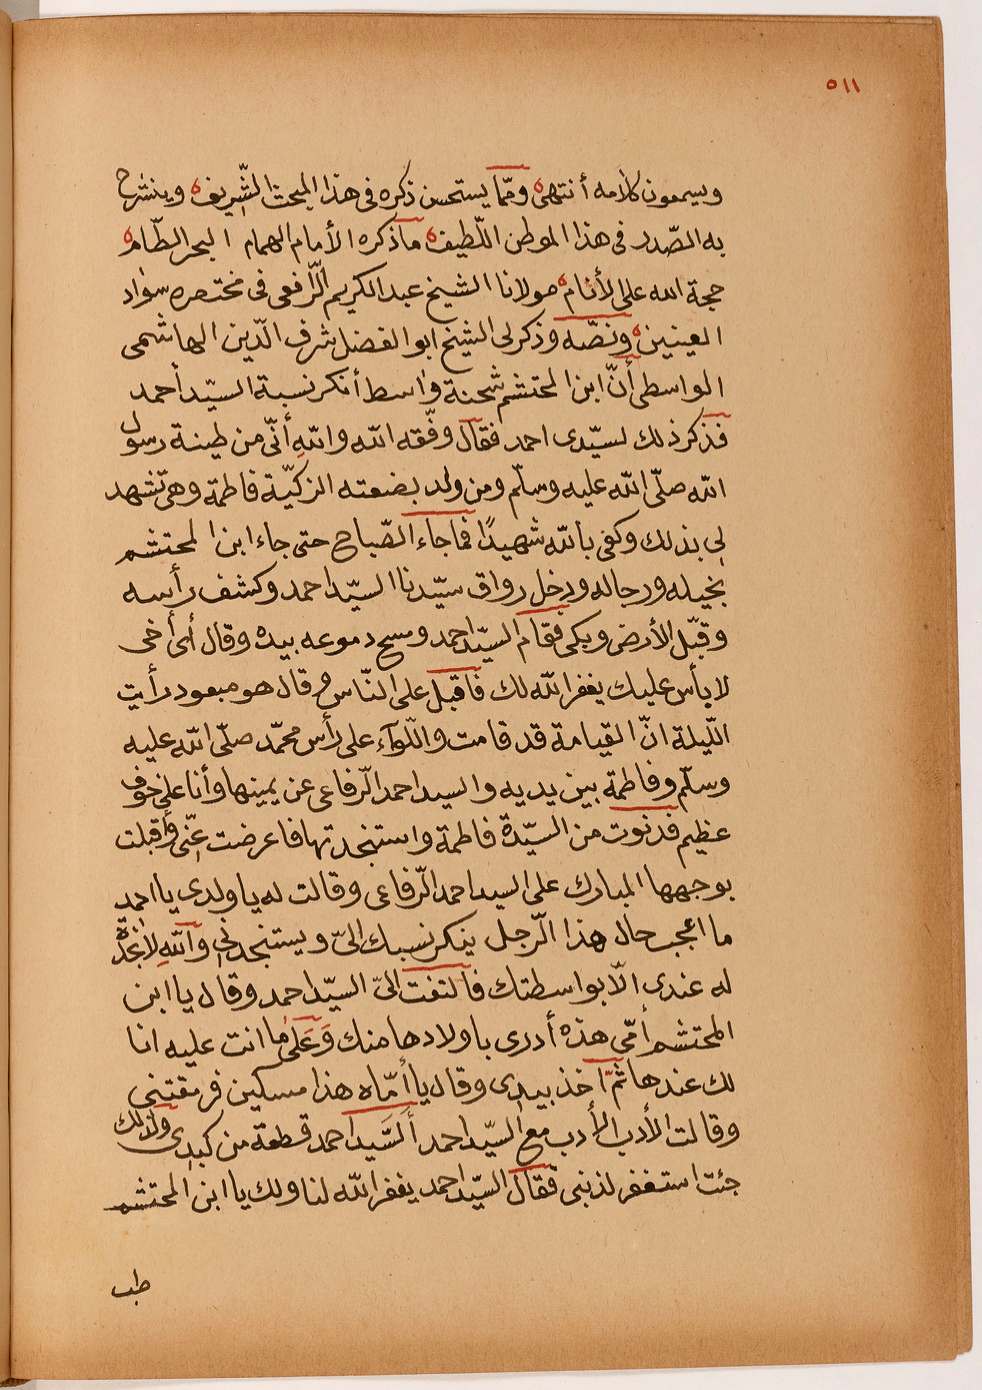 ٥١١
ويسمعون كلامه أنتهى ه وممّا يستحسن ذكره فى هذا المبحث الشّريف ه وينشرح
به الصّدر فى هذا الموطن اللّطيف ه ماذكره الأمام الهمام البحر الطّام ه
حجة الله على الأنام ه مولانا الشيخ عبد الكريم الرّافعى فى مختصره سواد
العينين ه ونصّه وذكر لى الشيخ ابو الفضل شرف الدّين الهاشمى
الواسطى أنّ ابن المحتشم شحنة واسط أنكر نسبة السيّد أحمد
فذكر ذلك لسيّدى احمد فقال وفّقه الله والله أنّى من طينة رسول
الله صلّى الله عليه وسلّم ومن ولد بضعته الزكيّة فاطمة وهى تشهد
لى بذلك وكفى بالله شهيدًا فماجاء الصّباح حتى جاء ابن المحتشم
بخيله ورجاله ودخل رواق سيّدنا السيّد احمد وكشف رأسه
وقبّل الأرض وبكى فقام السيّد احمد ومسح دموعه بيده وقال أى أخى
لا بأس عليك يغفر الله لك فاقبل على النّاس وقال هو مبعود رأيت
اللّيلة انّ القيامة قد قامت واللّوآء على رأس محمّد صلّى الله عليه
وسلّم وفاطمة بين يديه والسيد احمد الرّفاعى عن يمينها وأنا على خوف
عظيم فدنوت من السيّدة فاطمة واستنجدتها فاعرضت عنّى وأقبلت
بوجهها المبارك على السيد احمد الرّفاعى وقالت له يا ولدى يا احمد
ما اعجب حال هذا الرّجل ينكر نسبك الىّ ويستنجدنى والله لا نجدة
له عندى الّا بواسطتك فالتفت الىّ السيّد احمد وقال يا ابن
المحتشم أمّى هذه أدرى باولادها منك وَعَلى ما انت عليه انا
لك عندها ثمّ اخذ بيدى وقال يا أمّاه هذا مسكين فرمقتنى
وقالت الأدب الأدب مع السيّد احمد ألسَّيد احمد قطعة من كبدى ولذلك
جئت استغفر لذنبى فقال السيّد احمد يغفر الله لنا ولك يا ابن المحتشم
طب